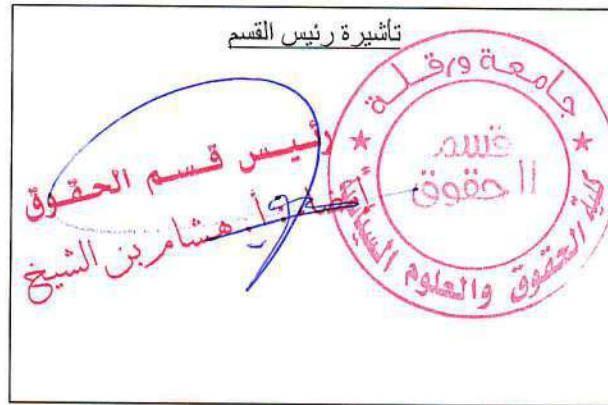 تأشيرة رئيس القسم
رئيس قسم الحقوق
أ. هشام بن الشيخ
جامعة ورقلة
قسم
الحقوق
كلية الحقوق والعلوم السياسية